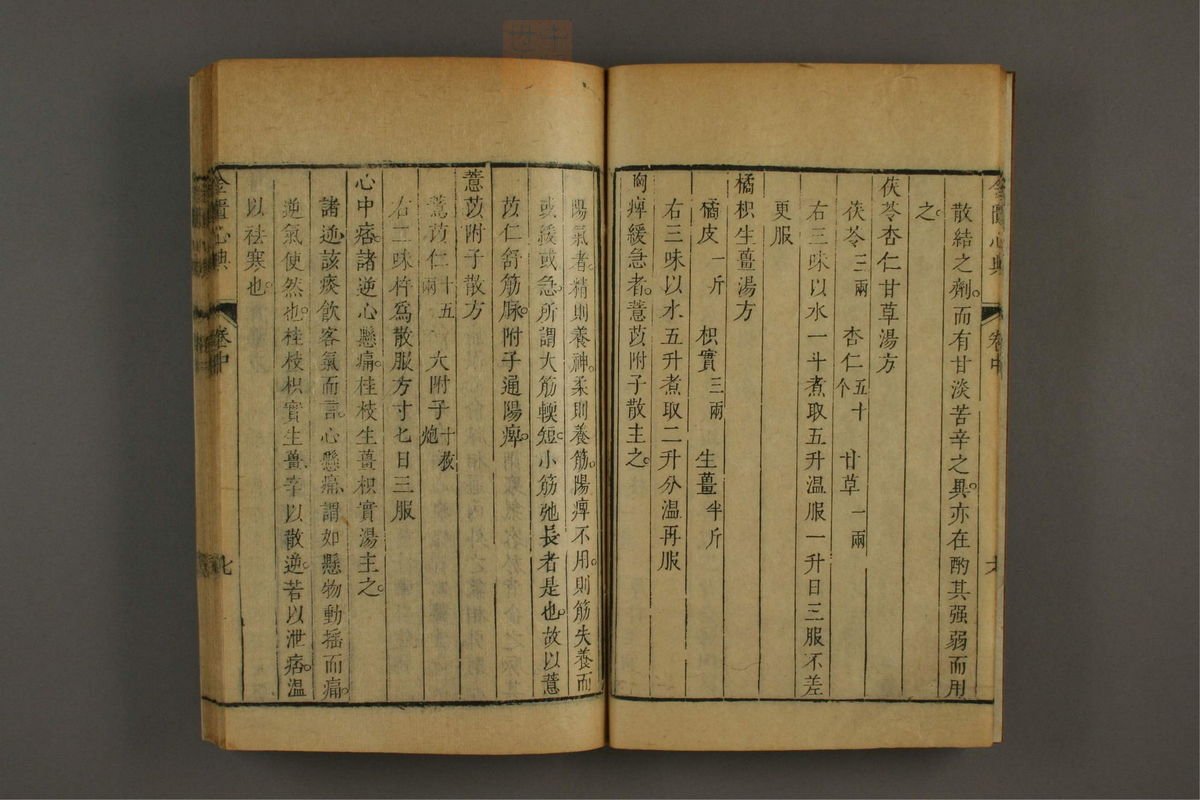 金匱心典
卷中
六
散結之劑而有甘淡苦辛之異亦在酌其强弱而用
之
茯苓杏仁甘草湯方
茯苓三兩 杏仁五十个 甘草一兩
右三味以水一斗煮取五升温服一升日三服不差
更服
橘枳生薑湯方
橘皮一斤 枳實三兩 生薑半斤
右三味以水五升煮取二升分温再服
胸痺緩急者薏苡附子散主之
陽氣者精則養神柔則養筋陽痺不用則筋失養而
或緩或急所謂大筋軟短小筋弛長者是也故以薏
苡仁舒筋脉附子通陽痺
薏苡附子散方
薏苡仁十五兩 大附子十枚炮
右二味杵爲散服方寸匕日三服
心中痞諸逆心懸痛桂枝生薑枳實湯主之
諸逆該痰飲客氣而言心懸痛謂如懸物動摇而痛
逆氣使然也桂枝枳實生薑辛以散逆苦以泄痞温
以祛寒也
金匱心典
卷中
七